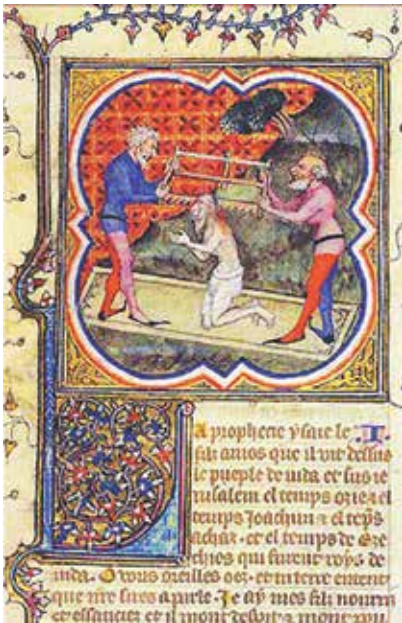 A prophecie ysaie le
filz amos que il vit dessus
le pueple de iuda et sus ie
rusalem el temps ozie et el
temps Joachim et el tẽps
achaz . et el temps de Eze
chies qui furent roys de
iuda. O vous oreilles oez . et tu terre entent
que nr̃e sires a parle. Je ay mes filz nourri
et essauciez et il mont despit